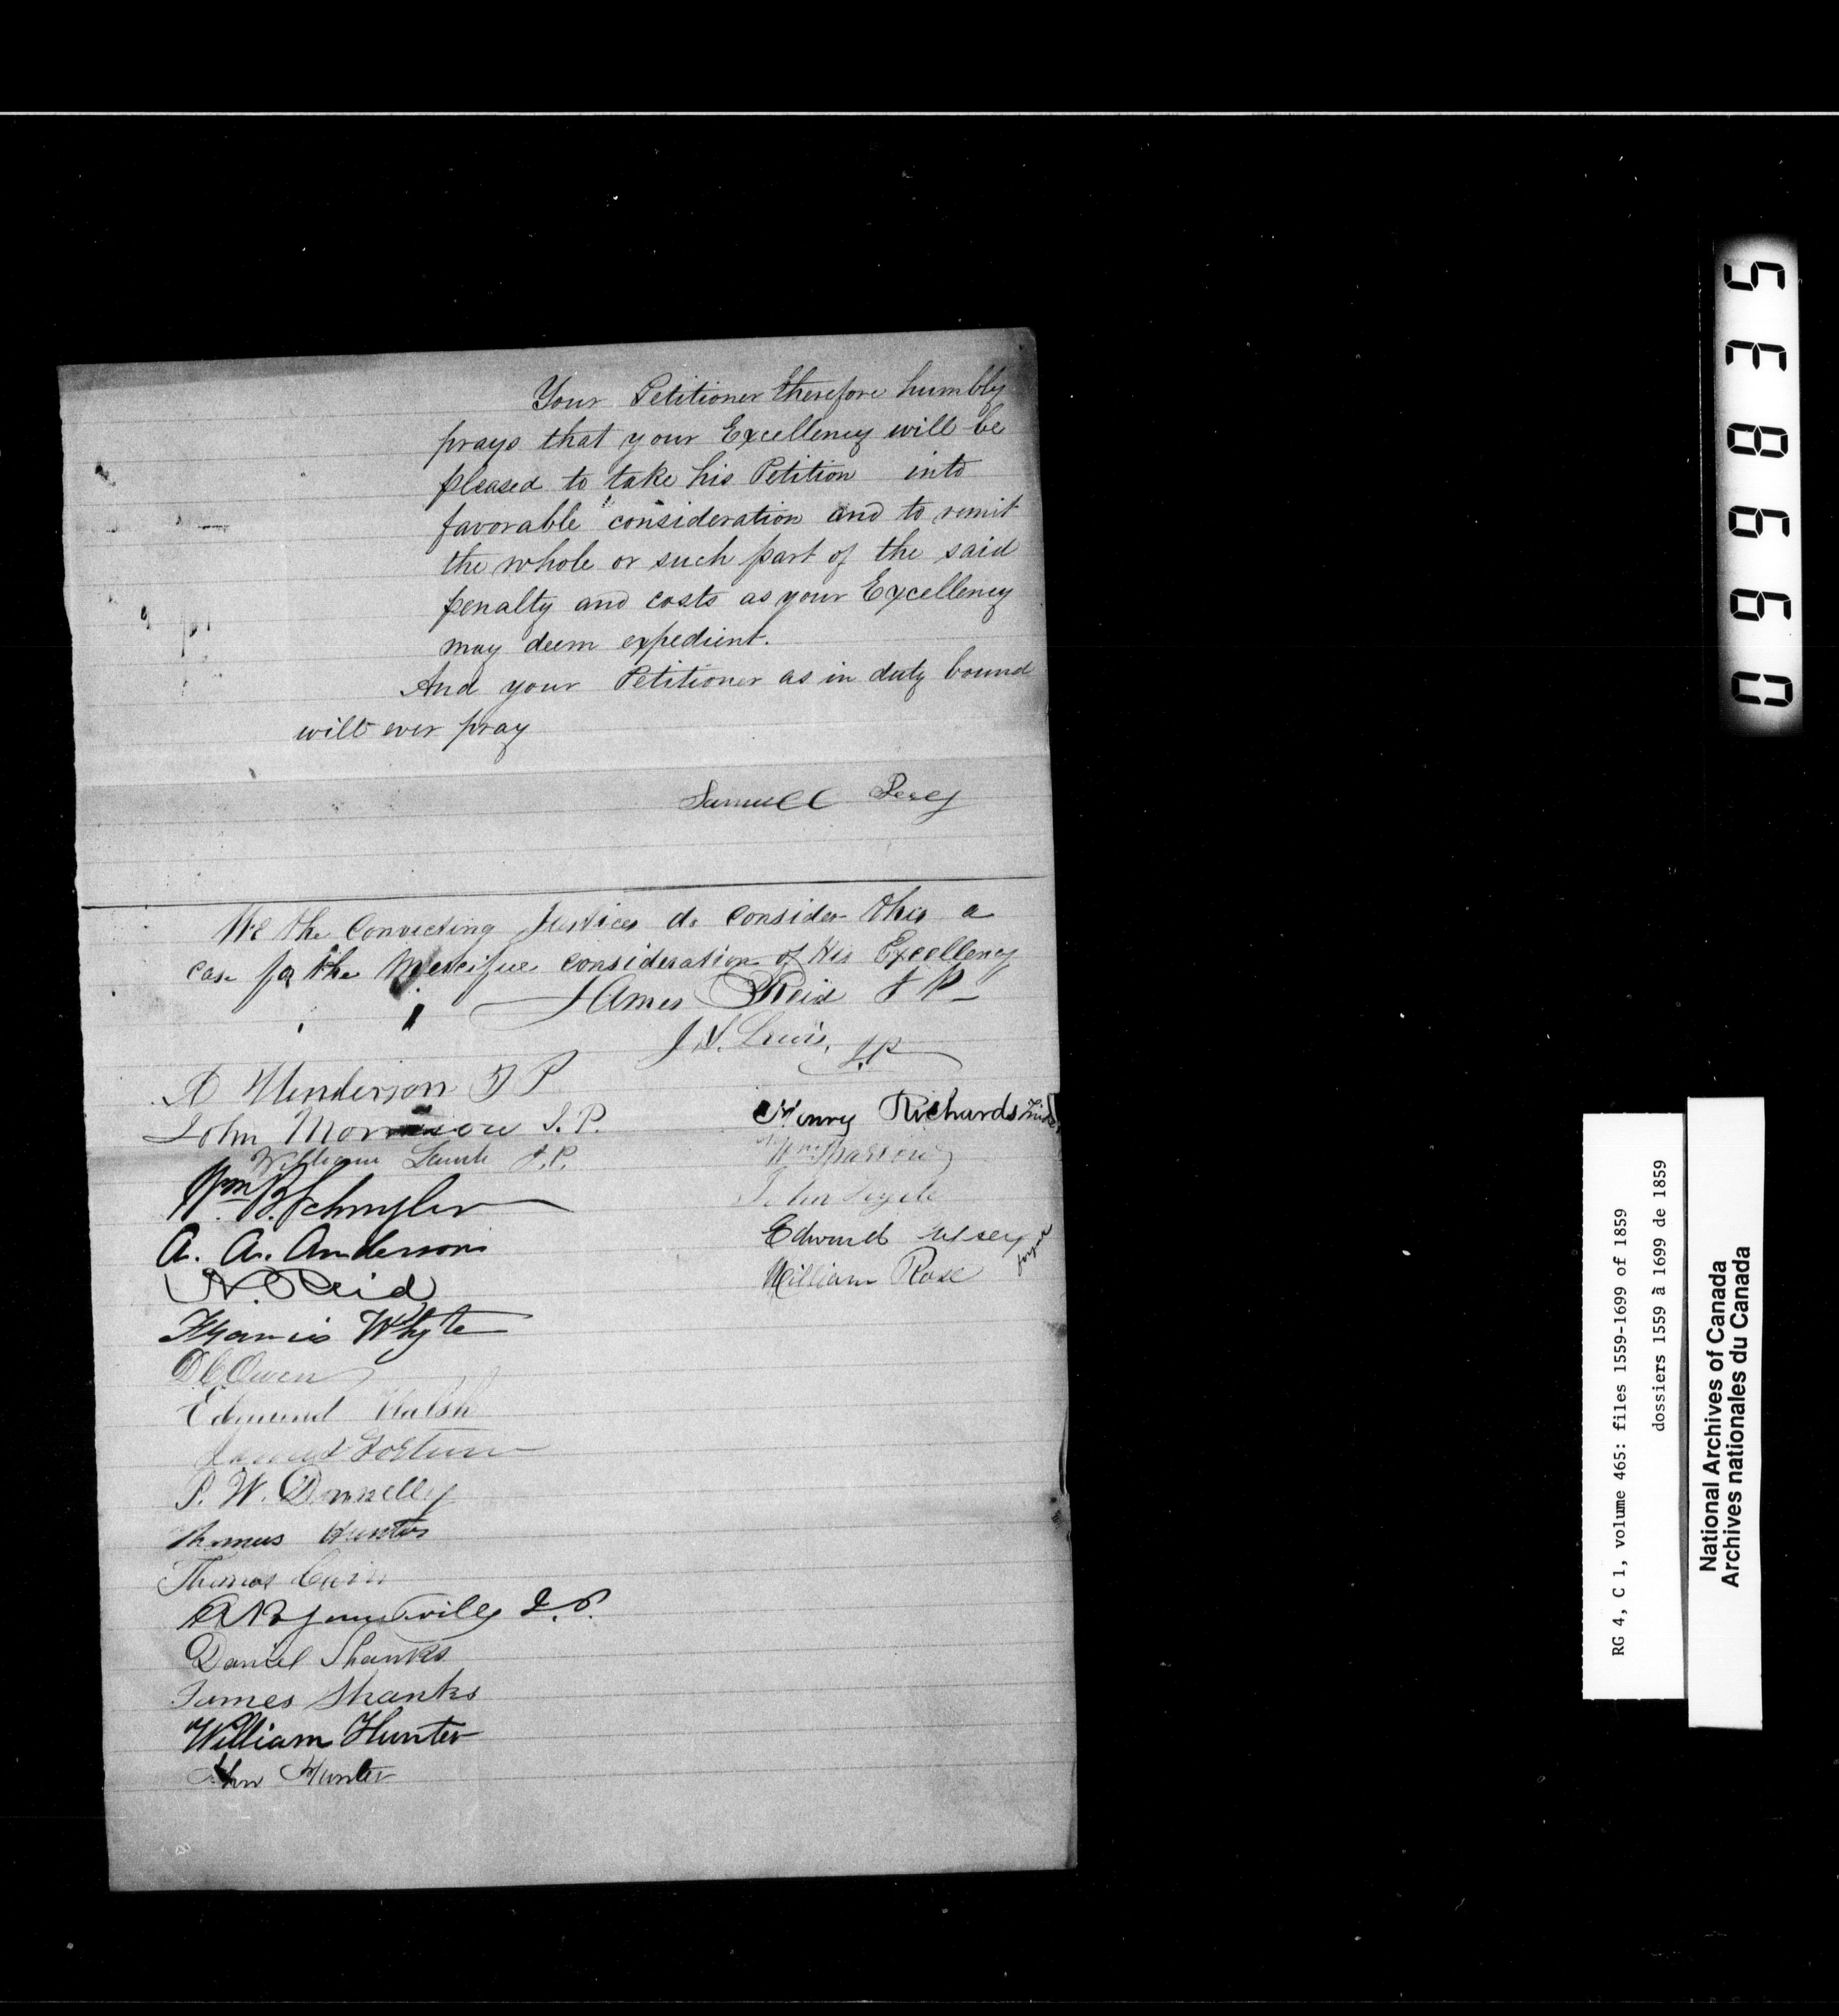 Your Petitioner therefore humbly
prays that your Excellency will be
pleased to take his Petition into
favorable consideration and to remit
the whole or such part of the said
penalty and costs as your Excellency
may deem expedient.
And your Petitioner as in duty bound
will ever pray
Samuell
We the Convicting Justices do consider this a
case for the Mercifull consideration of His Excellency
James Reid J P
J. N. Lewis, J.P
A Henderson J P
John Morrison J. P.
William Lamb J.P.
Wm. B. Schuyler
A. A. Anderson
N. Reid
Francis Whyte
D C Owen
Edmund Walsh
P. W. Donnelly
Thomas Hunter
Thomas
J. P.
Daniel Shanks
James Shanks
William Hunter
John Hunter
Henry Richards
Wm Sparrow
John
Edward
William Rose
53869960
RG 4, C 1, volume 465: files 1559-1699 of 1859
dossiers 1559 à 1699 de 1859
National Archives of Canada
Archives nationales du Canada